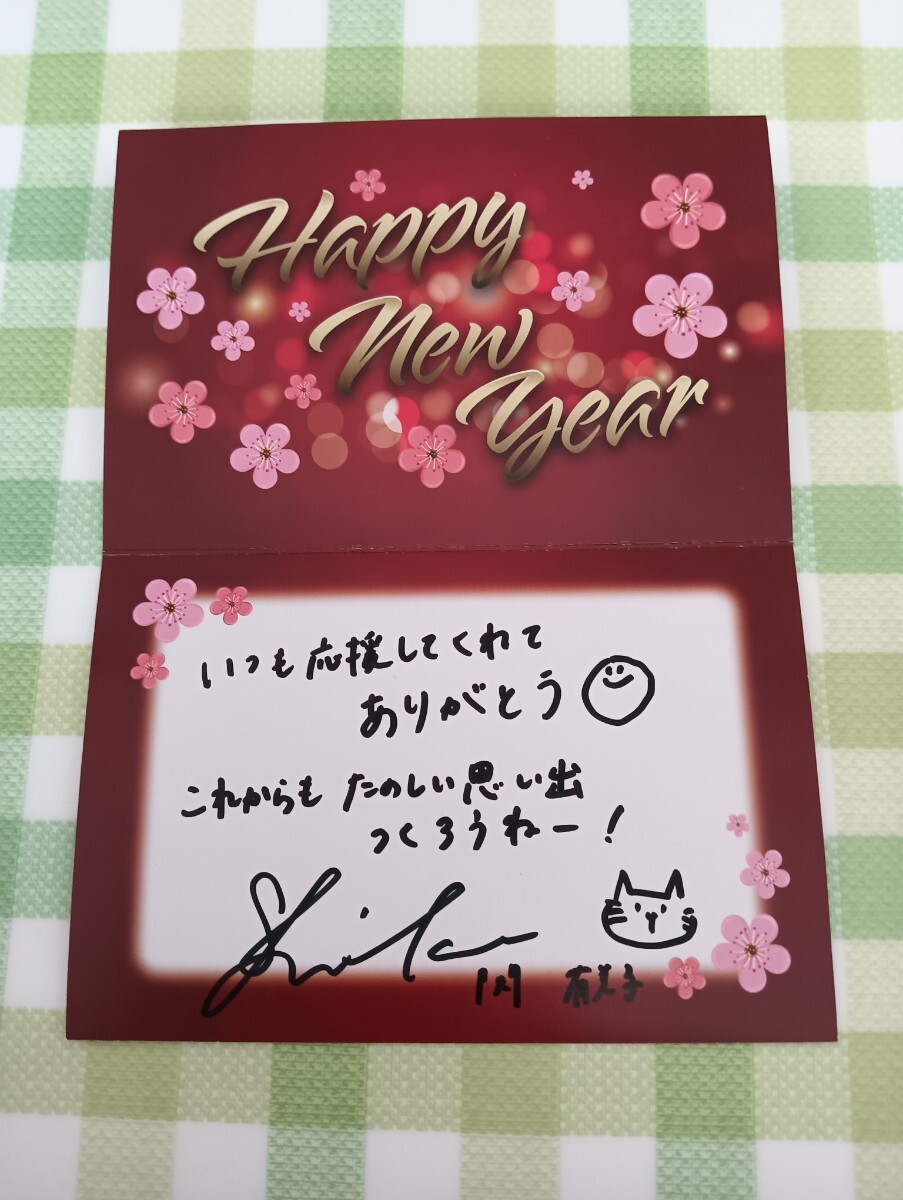 Happy
New
Year
いつも応援してくれて
ありがとう
これからも たのしい思い出
つくろうねー!
有美子